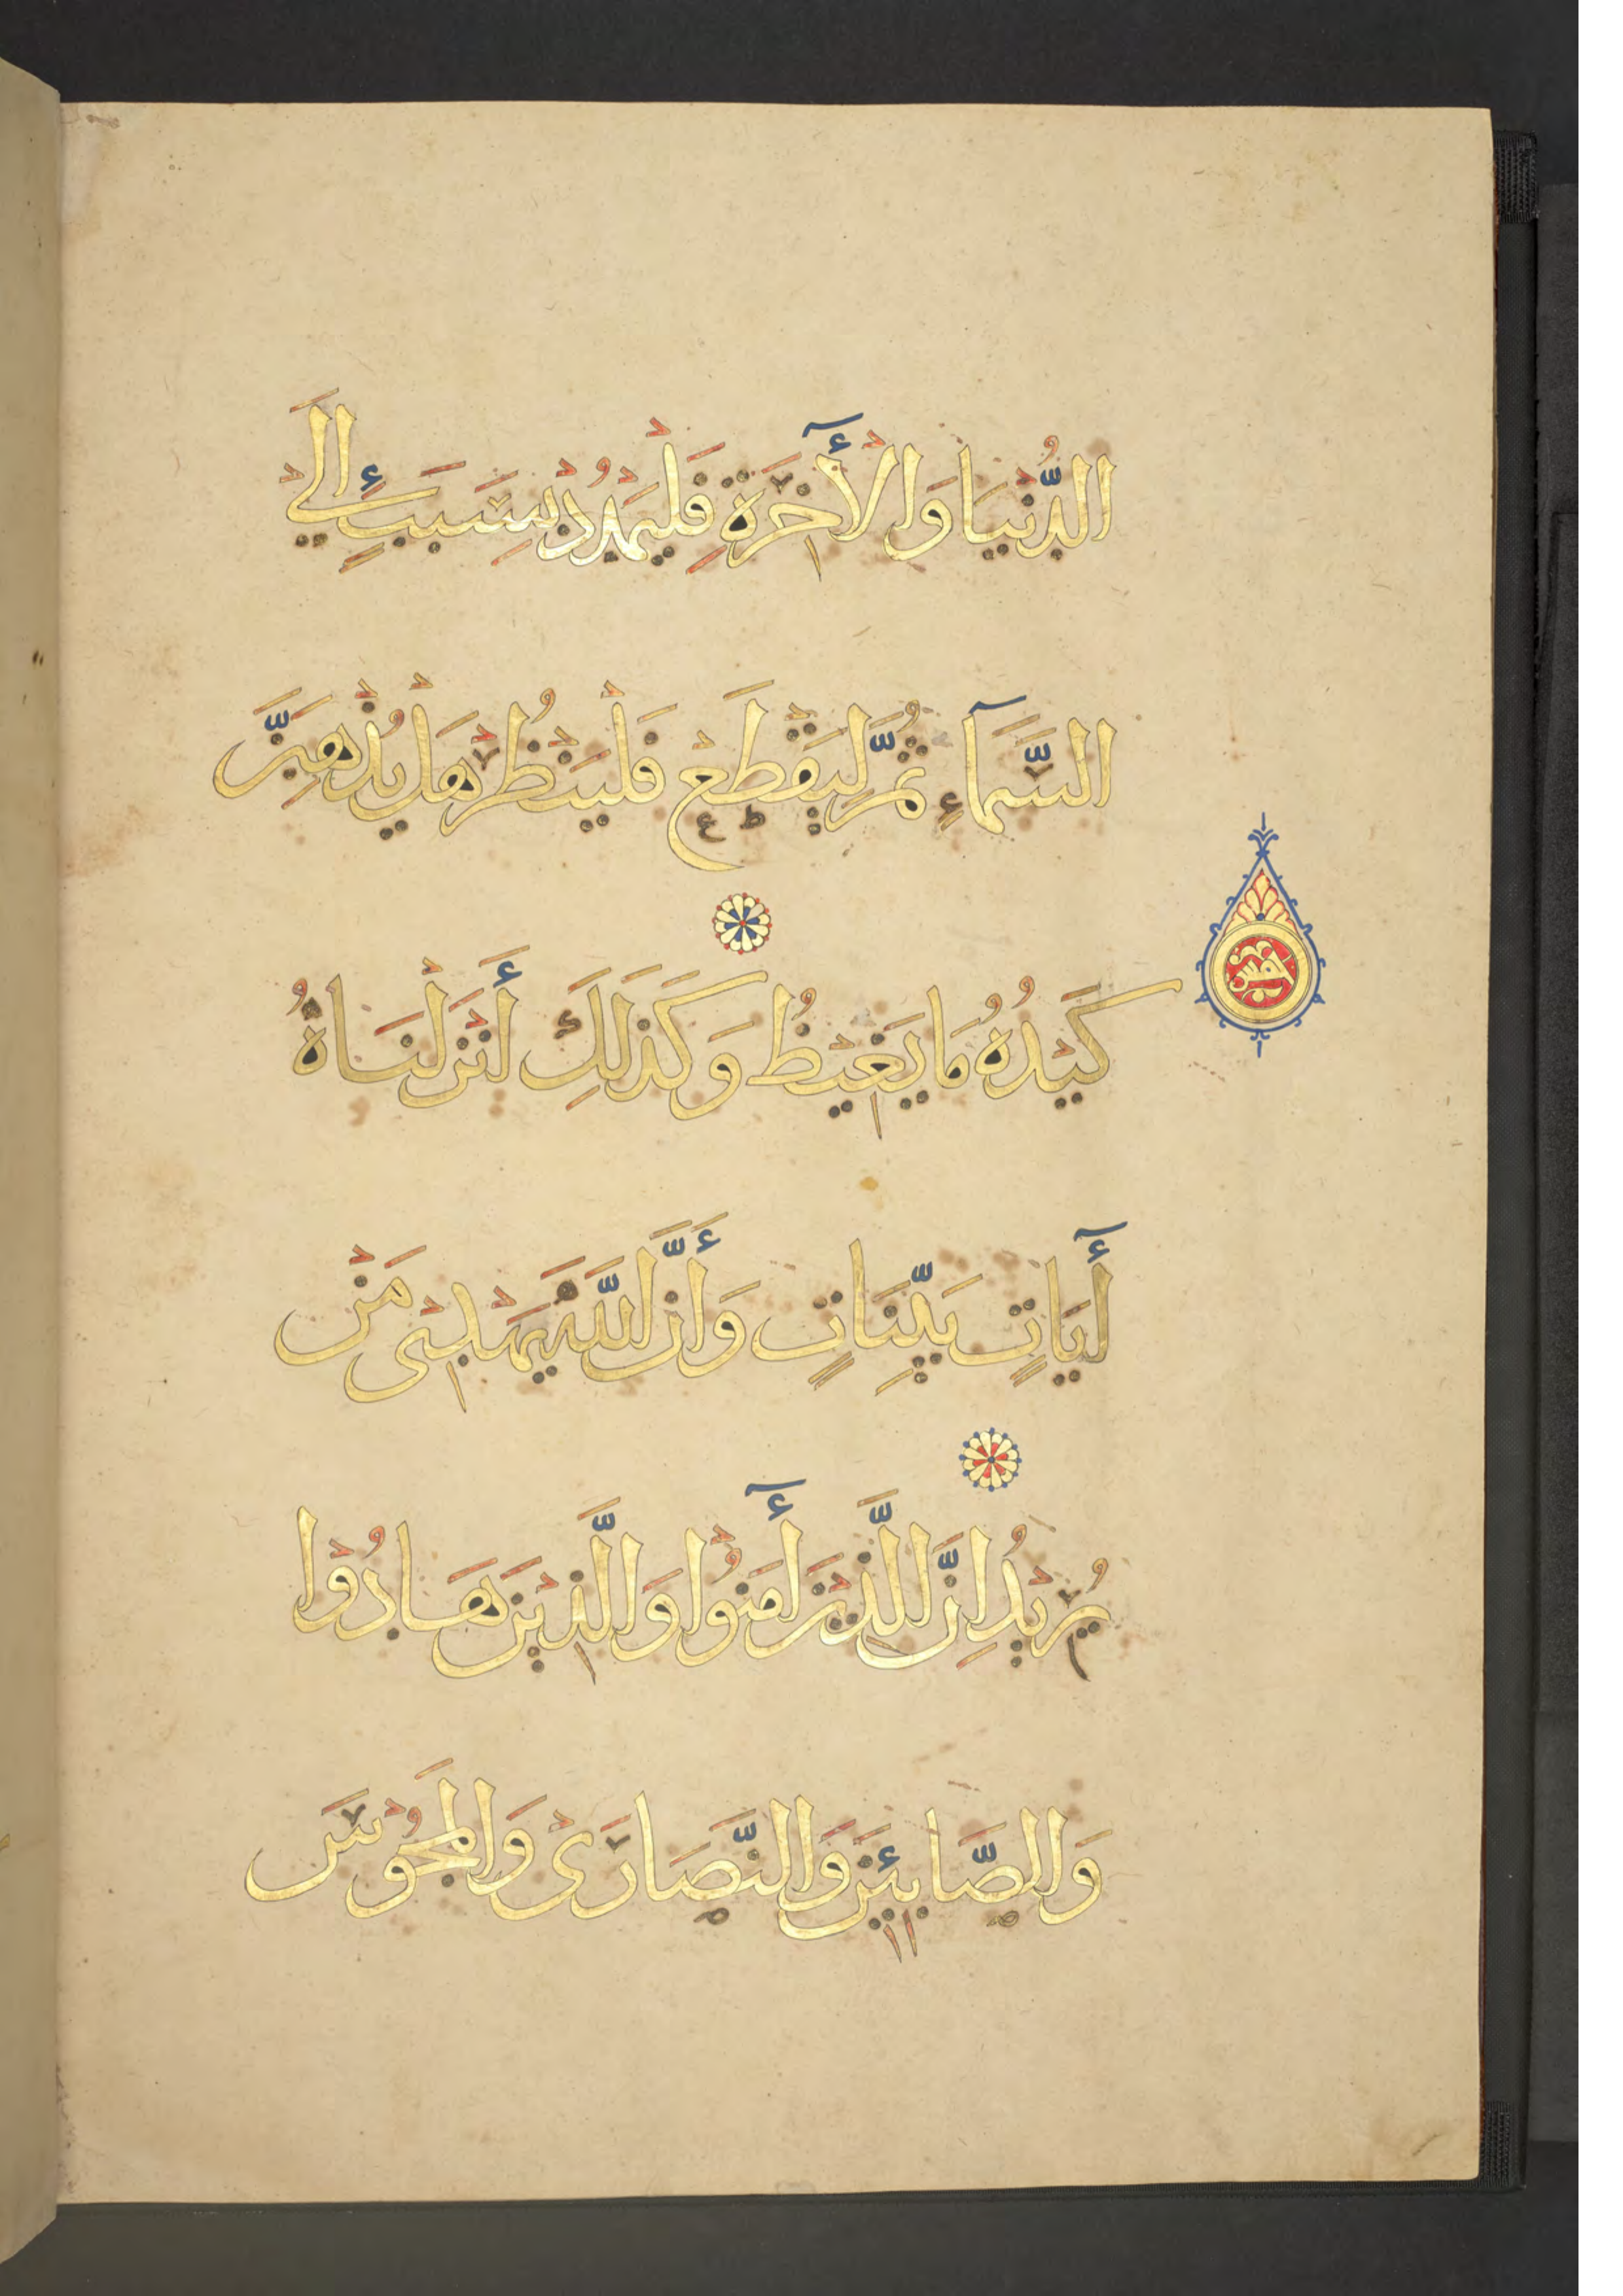 الدُّنْيَا وَالْأٓخِرَةِ فَلْيَمْدُدْ بِسَبَبٍ إِلَى
السَّمَآءِ ثُمَّ لْيَقْطَعْ فَلْيَنْظُرْ هَلْ يُذْهِبَنَّ
كَيْدُهُ مَا يَغِيْظُ وَكَذَلِكَ أَنْزَلْنَاهُ
أٓيَاتٍ بَيِّنَاتٍ وَأَنَّ اللَّهَ يَهْدِيْ مَنْ
يُرِيْدُ اِنَّ الَّذِيْنَ أٓمَنُوْا وَالَّذِيْنَ هَادُوْا
وَالصَّابِئِيْنَ وَالنَّصَارَى وَالْمَجُوْسَ